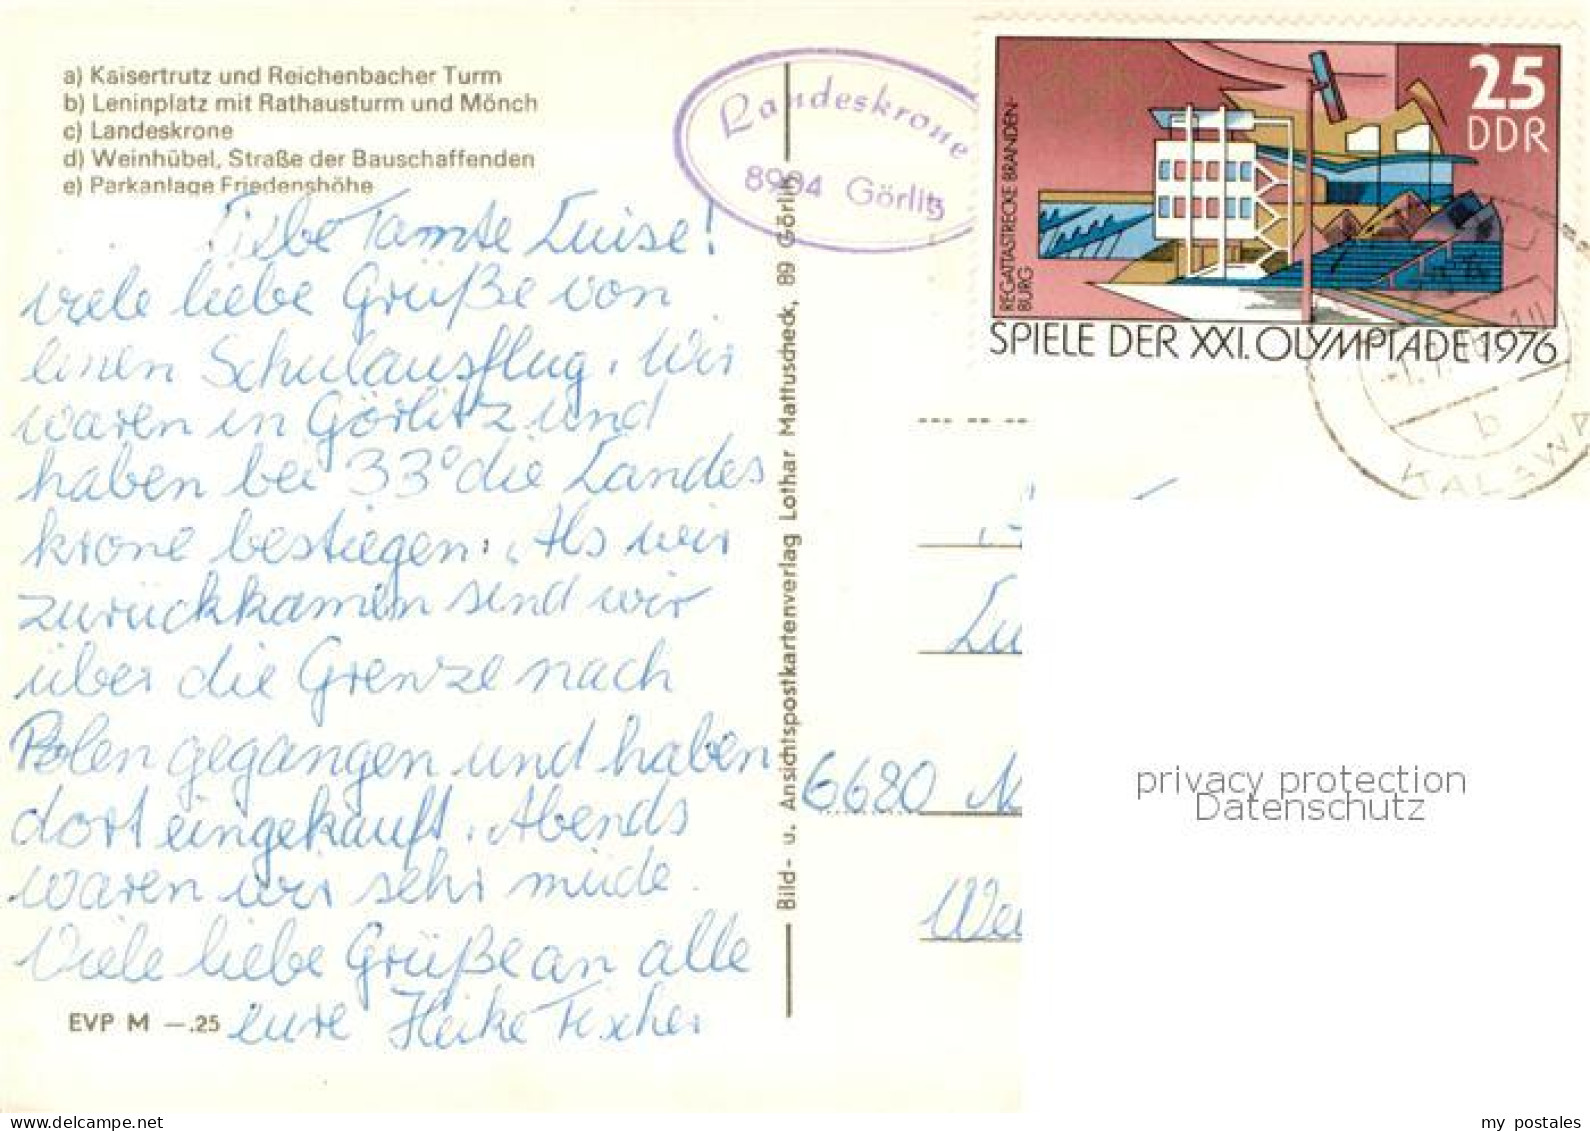 a) Kaisertrutz und Reichenbacher Turm
b) Leninplatz mit Rathausturm und Mönch
c) Landeskrone
d) Weinhübel, Straße der Bauschaffenden
e) Parkanlage Friedenshöhe
Landeskrone
8904 Görlitz
25
DDR
REGATTASTRECKE BRANDEN-
BURG
SPIELE DER XXI. OLYMPIADE 1976
b
KALAWA
Liebe Tante Luise!
viele liebe Grüße von
einen Schulausflug. Wir
waren in Görlitz und
haben bei 33° die Landes
krone bestiegen. Als wir
zurückkamen sind wir
über die Grenze nach
Polen gegangen und haben
dort eingekauft. Abends
waren wir sehr müde.
Viele liebe Grüße an alle
eure Heike Fischer
EVP M —.25
Bild- u. Ansichtspostkartenverlag Lothar Mattuscheck, 89 Görlitz
Lu
6680 N
We
privacy protection
Datenschutz
my_postales